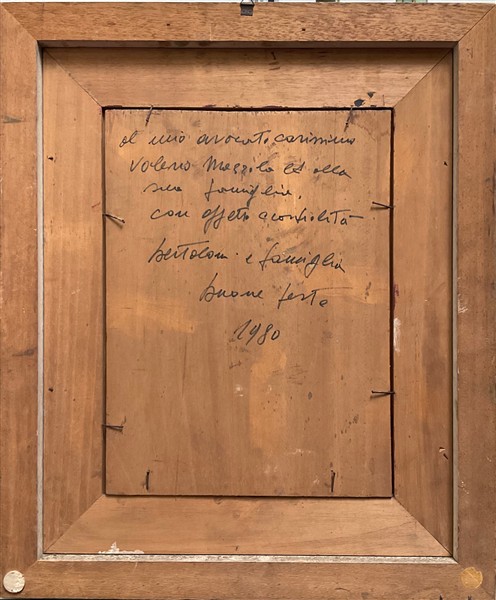 al mio avvocato carissimo
Valerio Mazzola ed alla
sua famiglia.
con affetto e cordialità
Bertolani e famiglia
buone feste
1980